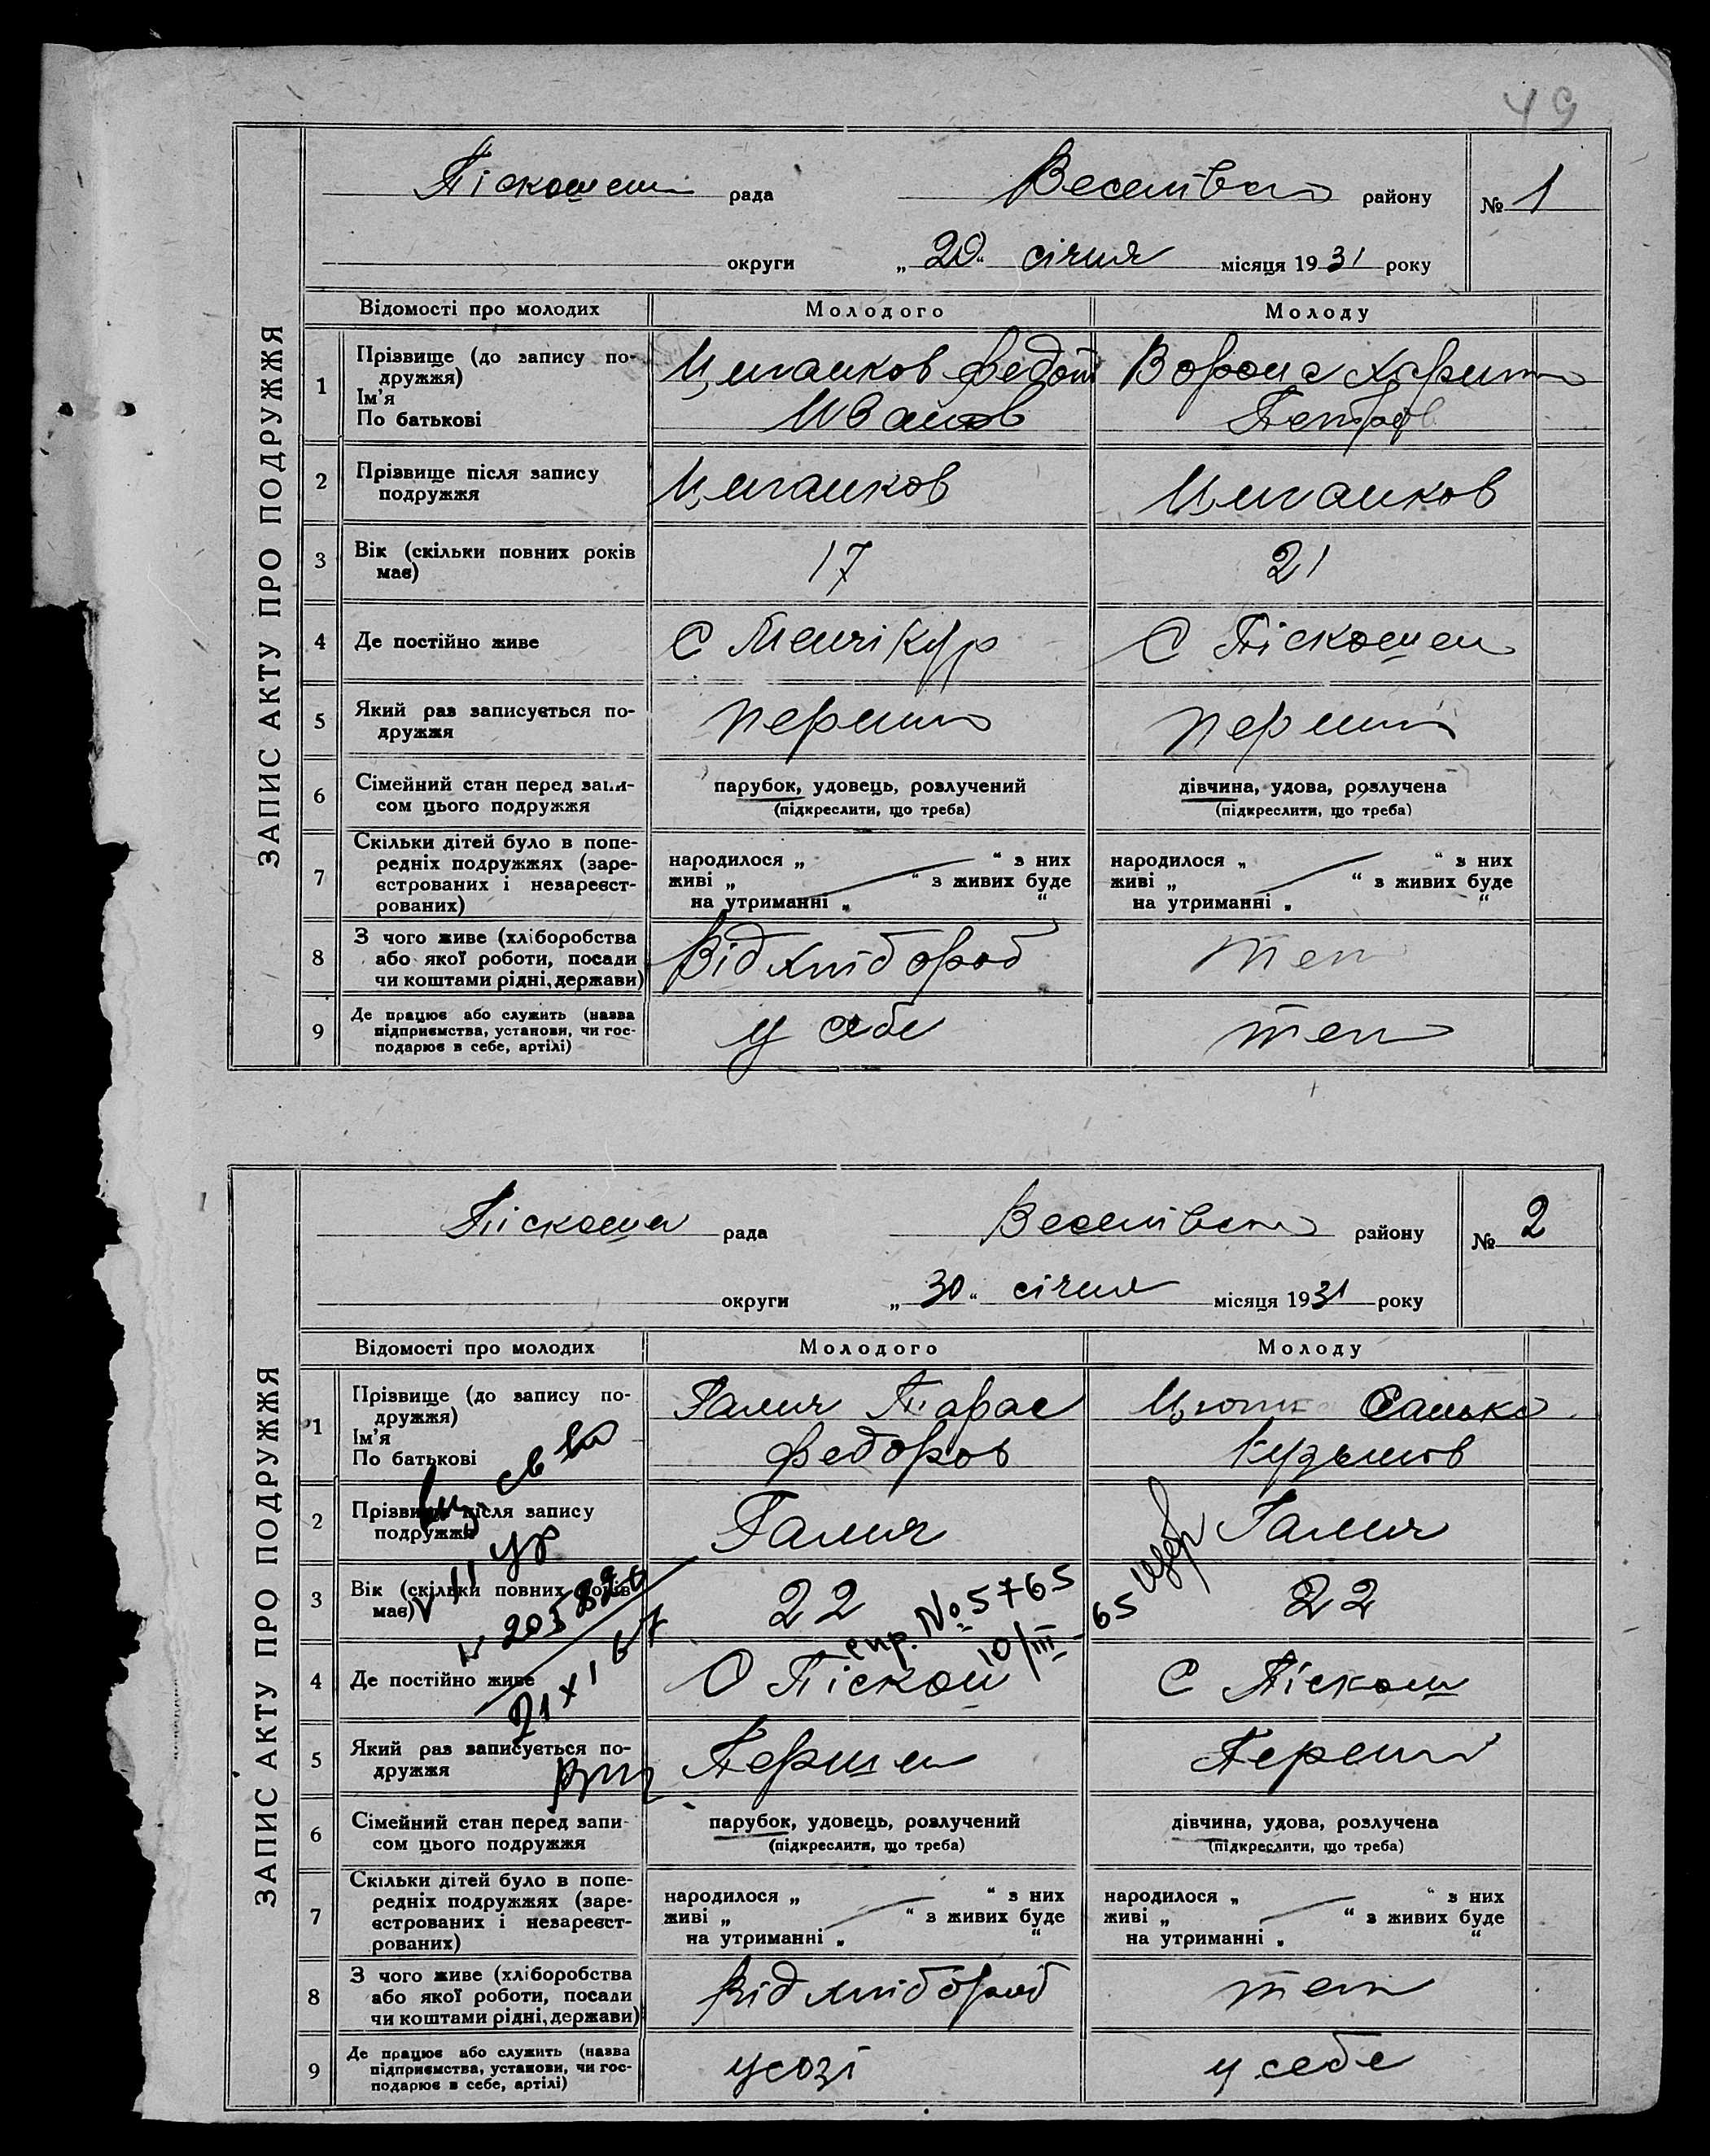 49
ЗАПИС АКТУ ПРО ПОДРУЖЖЯ
Піскошин рада Веселівськ району № 1
округи „20“ січня місяця 1931 року
Відомості про молодих Молодого Молоду
1 Прізвище (до запису по-
дружжя)
Ім'я
По батькові
Циганков Федот
Иванов
Ворона
Петров
2 Прізвище після запису
подружжя
Циганков Циганков
3 Вік (скільки повних років
має)
17 21
4 Де постійно живе С Менчікур С Піскошен
5 Який раз записується по-
дружжя
перший перший
6 Сімейний стан перед запи-
сом цього подружжя
парубок, удовець, розлучений
(підкреслити, що треба)
дівчина, удова, розлучена
(підкреслити, що треба)
7 Скільки дітей було в попе-
редніх подружжях (заре-
єстрованих і незареєст-
рованих)
народилося „ “ з них
живі „ “ з живих буде
на утриманні „ “
народилося „ “ з них
живі „ “ з живих буде
на утриманні „ “
8 З чого живе (хліборобства
або якої роботи, посади
чи коштами рідні, держави)
Від хлібороб теж
9 Де працює або служить (назва
підприємства, установи, чи гос-
подарює в себе, артілі)
у себе теж
ЗАПИС АКТУ ПРО ПОДРУЖЖЯ
Піскоши рада Веселівськ району № 2
округи „30“ січня місяця 1931 року
Відомості про молодих Молодого Молоду
1 Прізвище (до запису по-
дружжя)
Ім'я
По батькові
Галич Тарас
Федоров
Санька
Кузьмов
2 Прізвище після запису
подружжя
Галич Галич
3 Вік (скільки повних років
має)
22 22
спр. № 5765
10/III-65
21 XI 67
4 Де постійно живе С Піскош С Піскош
5 Який раз записується по-
дружжя
Перший Перший
6 Сімейний стан перед запи-
сом цього подружжя
парубок, удовець, розлучений
(підкреслити, що треба)
дівчина, удова, розлучена
(підкреслити, що треба)
7 Скільки дітей було в попе-
редніх подружжях (заре-
єстрованих і незареєст-
рованих)
народилося „ “ з них
живі „ “ з живих буде
на утриманні „ “
народилося „ “ з них
живі „ “ з живих буде
на утриманні „ “
8 З чого живе (хліборобства
або якої роботи, посади
чи коштами рідні, держави)
Від хлібороб теж
9 Де працює або служить (назва
підприємства, установи, чи гос-
подарює в себе, артілі)
усозі у себе